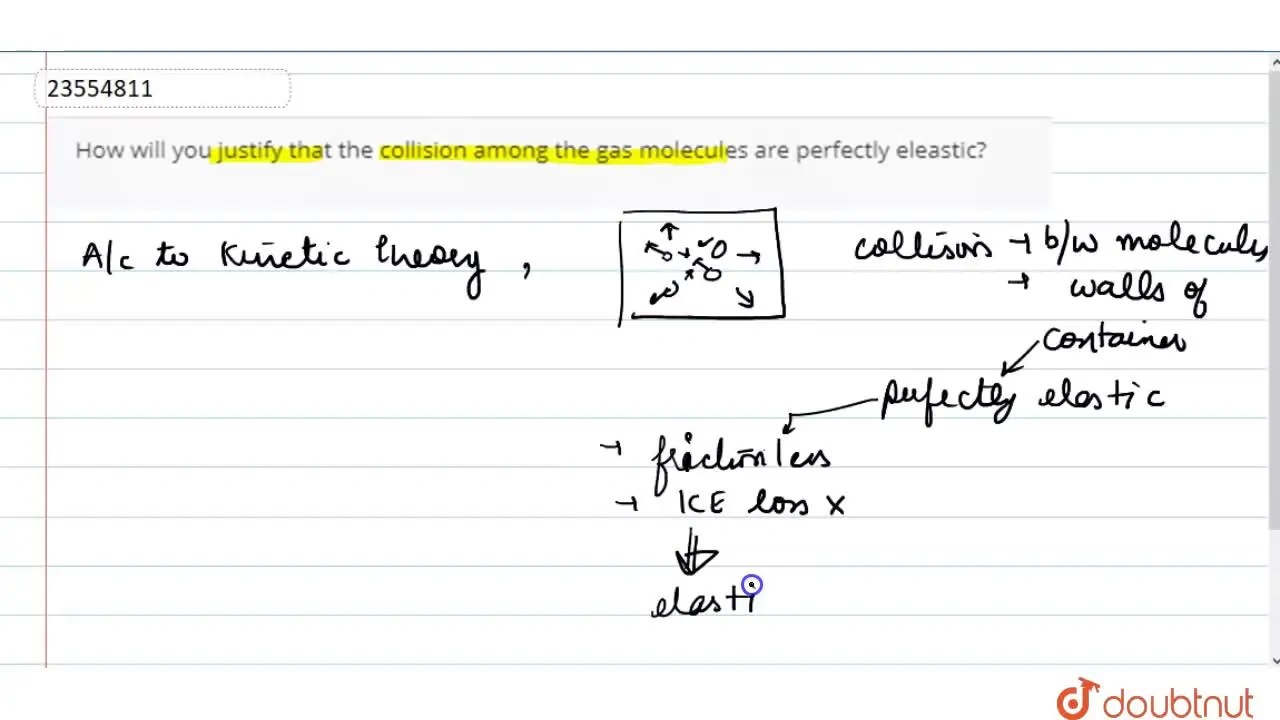 23554811
How will you justify that the collision among the gas molecules are perfectly eleastic?
A/c to Kinetic theory,
collisions → b/w molecules
→ walls of
container
perfectly elastic
→ frictionless
→ KE loss x
elasti
doubtnut